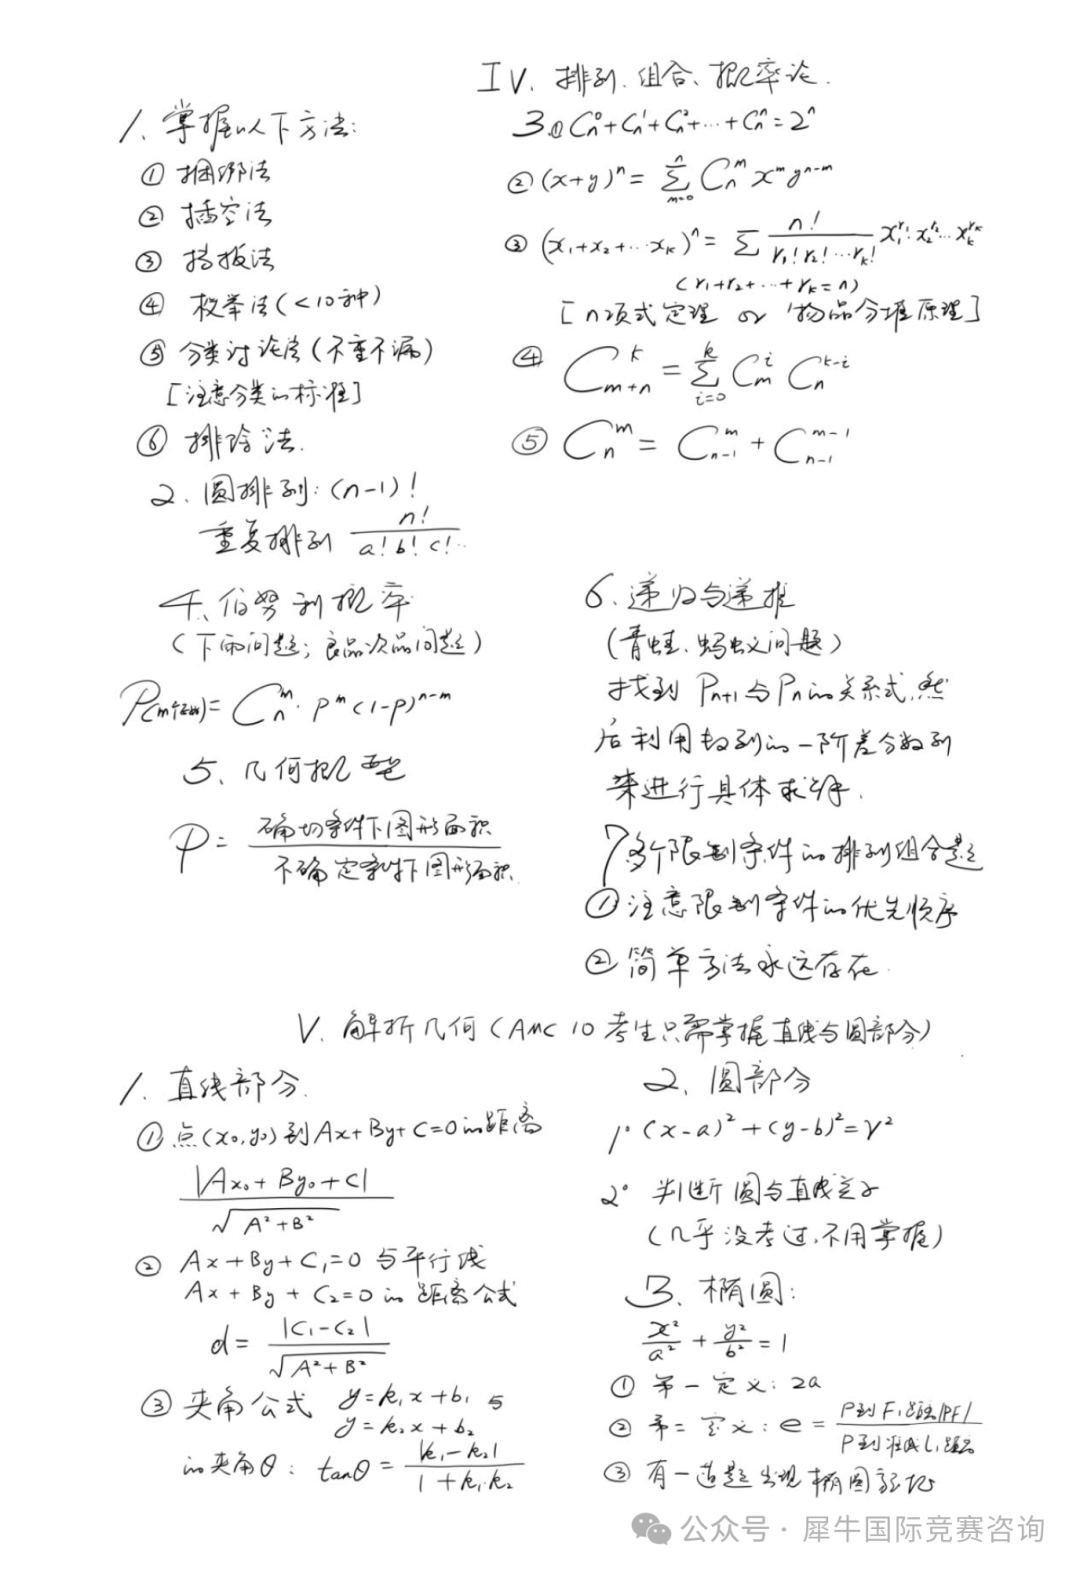 IV. 排列.组合、概率论.
1. 掌握以下方法:
① 捆绑法
② 插空法
③ 挡板法
④ 枚举法(<10种)
⑤ 分类讨论法(不重不漏)
[注意分类的标准]
⑥ 排除法.
2. 圆排列: (n-1)!
重复排列 n!/(a!b!c!…)
3.① Cₙ⁰+Cₙ¹+Cₙ²+…+Cₙⁿ=2ⁿ
② (x+y)ⁿ= Σ_{m=0}^{n} Cₙᵐ xᵐ yⁿ⁻ᵐ
③ (x₁+x₂+…xₖ)ⁿ= Σ n!/(r₁!r₂!…rₖ!) x₁^{r₁}·x₂^{r₂}…xₖ^{rₖ}
(r₁+r₂+…+rₖ=n)
[n项式定理 or 物品分堆原理]
④ C_{m+n}^{k} = Σ_{i=0}^{k} C_m^{i} C_n^{k-i}
⑤ C_n^{m} = C_{n-1}^{m} + C_{n-1}^{m-1}
4. 伯努利概率
(下雨问题; 良品次品问题)
P()= Cₙᵐ · pᵐ(1-p)ⁿ⁻ᵐ
5、几何概型
P= 确切条件下图形面积/不确定条件下图形面积
6. 递归与递推
(青蛙、蚂蚁问题)
找到 Pn+1与Pn的关系式,然
后利用数列的一阶差分数列
来进行具体求解.
7 多个限制条件的排列组合题
① 注意限制条件的优先顺序
② 简单方法永远存在.
V. 解析几何(AMC 10 考生只需掌握直线与圆部分)
1. 直线部分.
① 点(x₀,y₀)到Ax+By+C=0的距离
|Ax₀+By₀+C|/√(A²+B²)
② Ax+By+C₁=0 与平行线
Ax+By+C₂=0 的距离公式
d= |C₁-C₂|/√(A²+B²)
③ 夹角公式 y=k₁x+b₁与
y=k₂x+b₂
的夹角θ: tanθ= |k₁-k₂|/(1+k₁·k₂)
2. 圆部分
1° (x-a)²+(y-b)²=r²
2° 判断圆与直线关系
(几乎没考过,不用掌握)
3. 椭圆:
x²/a² + y²/b² =1
① 第一定义: 2a
② 第二定义: e= P到F₁距离|PF|/P到准线L₁距离
③ 有一道题出现椭圆
公众号·犀牛国际竞赛咨询